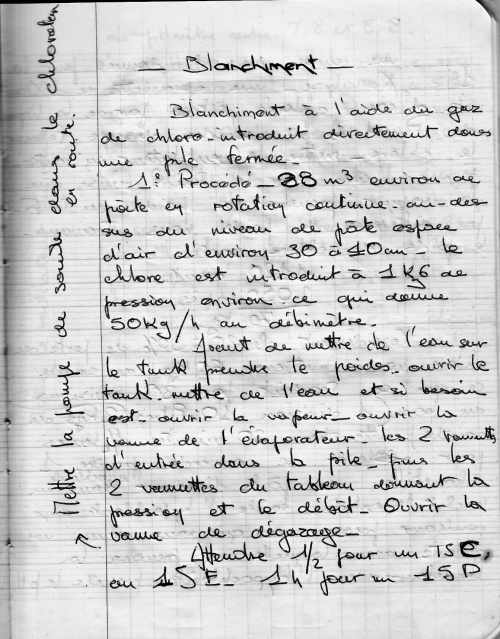 — Blanchiment —
Blanchiment à l'aide du gaz
de chlore introduit directement dans
une pile fermée.
1º Procédé - 28 m³ environ de
pâte en rotation continue. au-des
sus du niveau de pâte espace
d'air d'environ 30 à 40 cm - le
chlore est introduit à 1 KG de
pression environ ce qui donne
50 Kg/h au débimètre.
Avant de mettre de l'eau sur
le tank prendre le poids. ouvrir le
tank. mettre de l'eau et si besoin
est. ouvrir la vapeur - ouvrir la
vanne de l'évaporateur. les 2 vannettes
d'entrée dans la pile - puis les
2 vannettes du tableau donnant la
pression et le débit - Ouvrir la
vanne de dégazage -
Attendre 1/2 pour un
ou 15 E - 1 h pour un 15 D
→ Mettre la pompe de soude dans le chloration
en route.